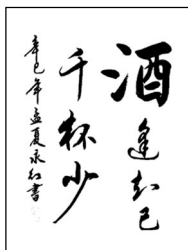 酒逢知己
千杯少
辛巳年孟夏永红書